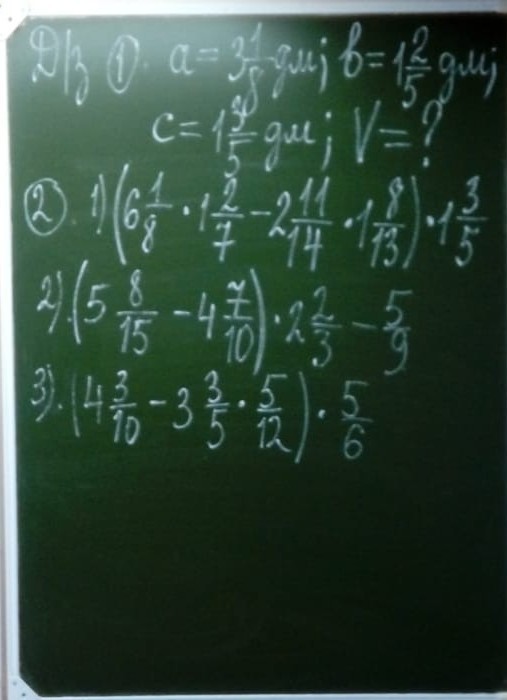 Д/з ①. a = 3 1/8 дм; b = 1 2/5 дм;
c = 1 3/5 дм; V = ?
②. 1) (6 1/8 · 1 2/7 − 2 11/14 · 1 8/13) · 1 3/5
2). (5 8/15 − 4 7/10) · 2 2/3 − 5/9
3). (4 3/10 − 3 3/5 · 5/12) · 5/6